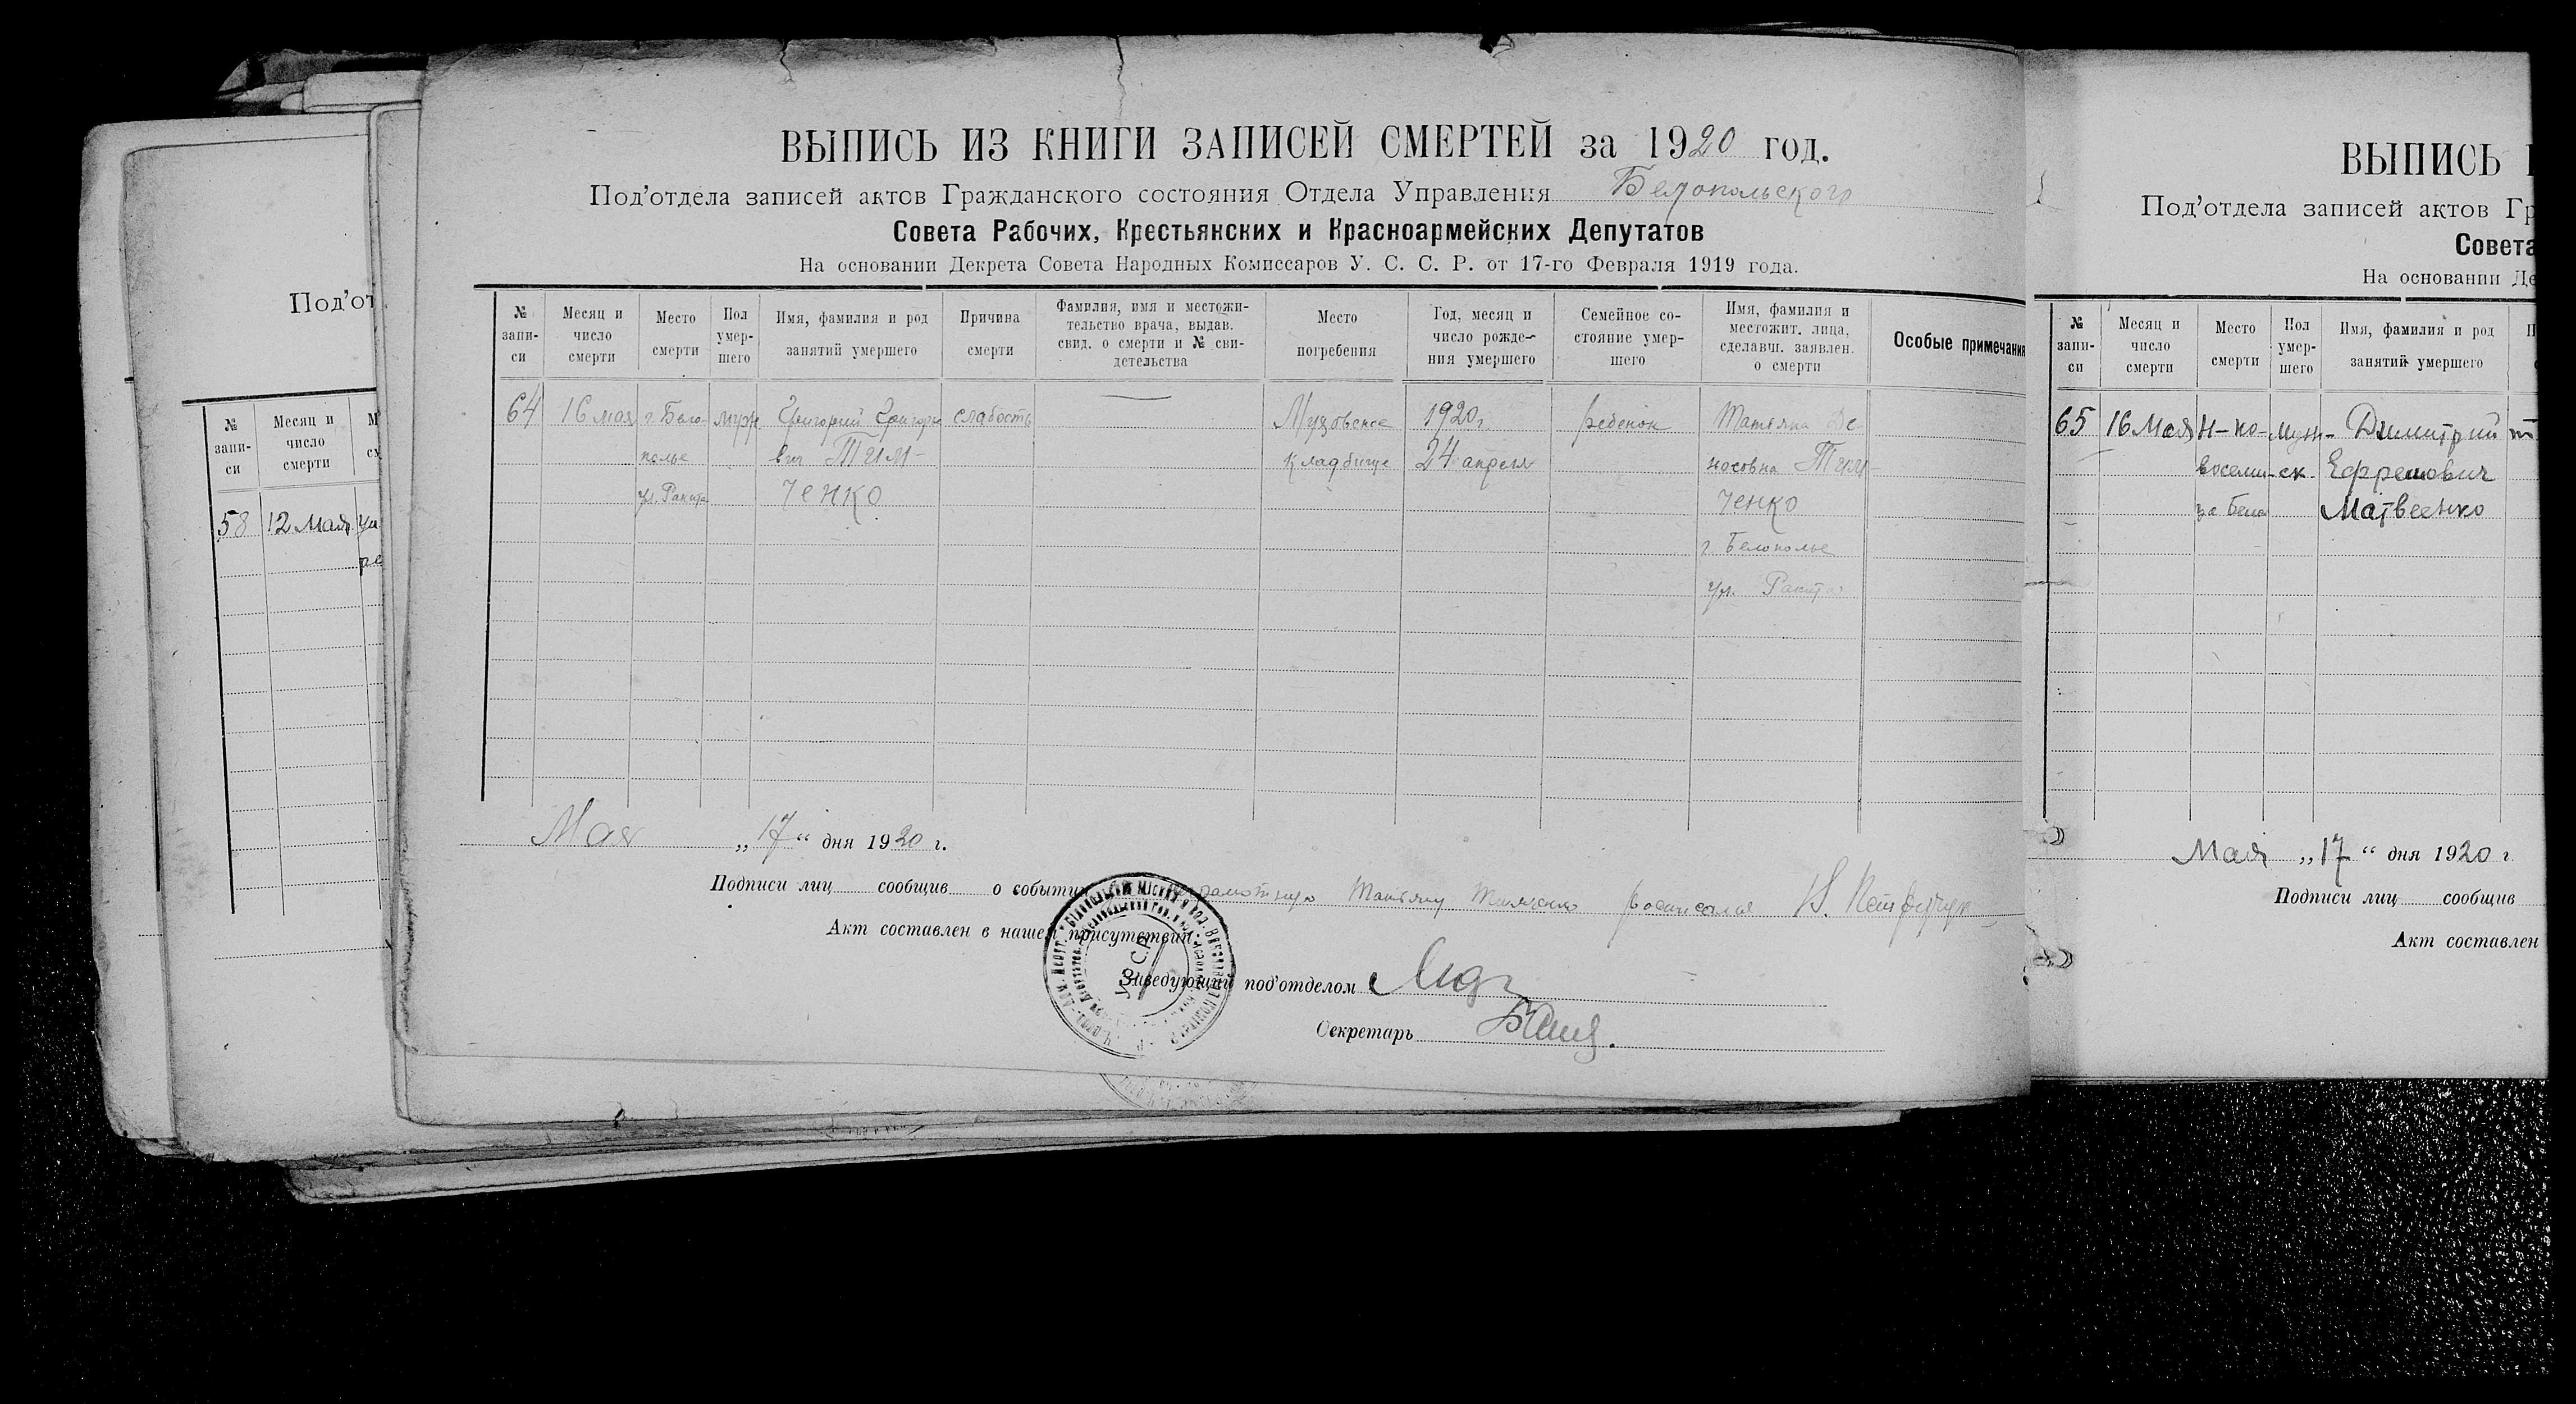 Под'от
№ запи-си
Месяц и число смерти
58 12 Мая
ВЫПИСЬ ИЗ КНИГИ ЗАПИСЕЙ СМЕРТЕЙ за 1920 год.
Под'отдела записей актов Гражданского состояния Отдела Управления Белопольского
Совета Рабочих, Крестьянских и Красноармейских Депутатов
На основании Декрета Совета Народных Комиссаров У. С. С. Р. от 17-го Февраля 1919 года.
№ запи-си
Месяц и число смерти
Место смерти
Пол умер-шего
Имя, фамилия и род занятий умершего
Причина смерти
Фамилия, имя и местожи-тельство врача, выдав. свид. о смерти и № сви-детельства
Место погребения
Год, месяц и число рожде-ния умершего
Семейное со-стояние умер-шего
Имя, фамилия и местожит. лица, сделавш. заявлен. о смерти
Особые примечания
64 16 мая г. Бело- муж. Григорий Григорье слабость — 1920 г. ребенок Татьяна Де
полье вич Тим- кладбище 24 апреля носовна Тим-
ул. Ракита ченко ченко
г. Белополье
ул. Ракита
Мая „17“ дня 1920 г.
Подписи лиц сообщив о событи Татьяну Тимченко росписался
Акт составлен в нашем присутствии:
Заведующий под'отделом
Секретарь
ВЫПИСЬ
Под'отдела записей актов Гр
Совета
На основании Де
№ запи-си
Месяц и число смерти
Место смерти
Пол умер-шего
Имя, фамилия и род занятий умершего
65 16 Мая Н-по- муж- Димитрий
восели- ск. Ефремович
Матвеенко
Мая „17“ дня 1920 г
Подписи лиц сообщив
Акт составлен